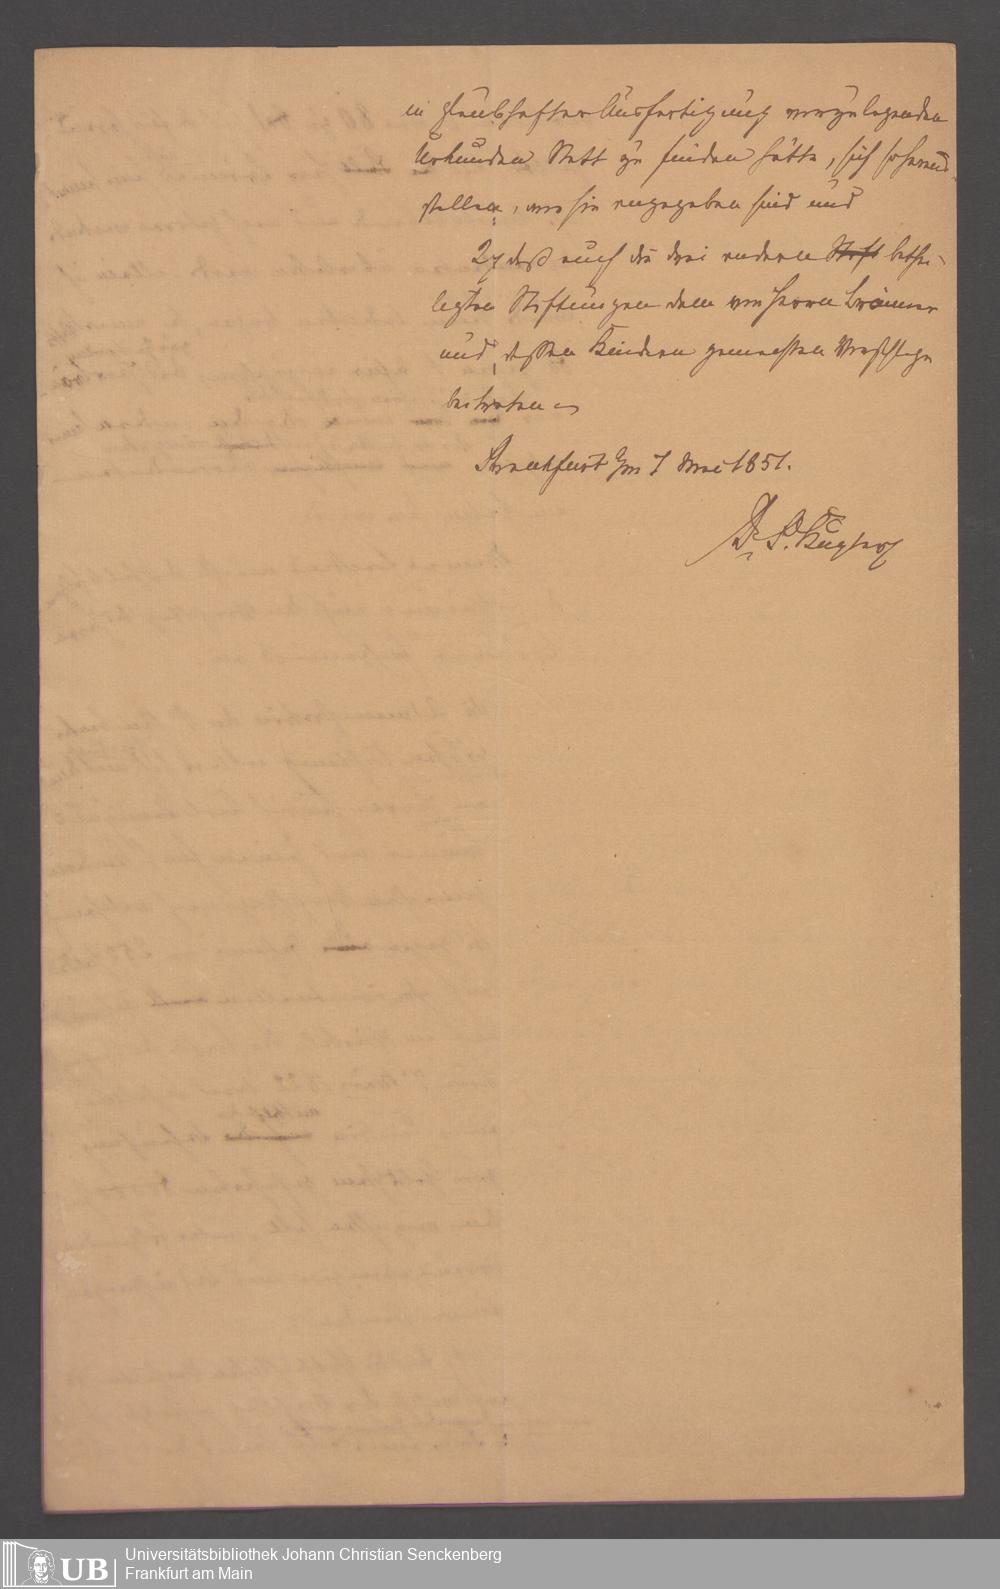 in glaubhafter Ausfertigung vorzulegenden
Urkunden Statt zu finden hätte, sich so heraus¬
stellen, wie sie angegeben sind und
2, daß auch die drei anderen Stift bethei¬
ligten Stiftungen dem von Herrn Brönner
und dessen Kindern gemachten Vorschlage
beitreten
Frankfurt 7 Mai 1851.
Dr.
UB
Universitätsbibliothek Johann Christian Senckenberg
Frankfurt am Main